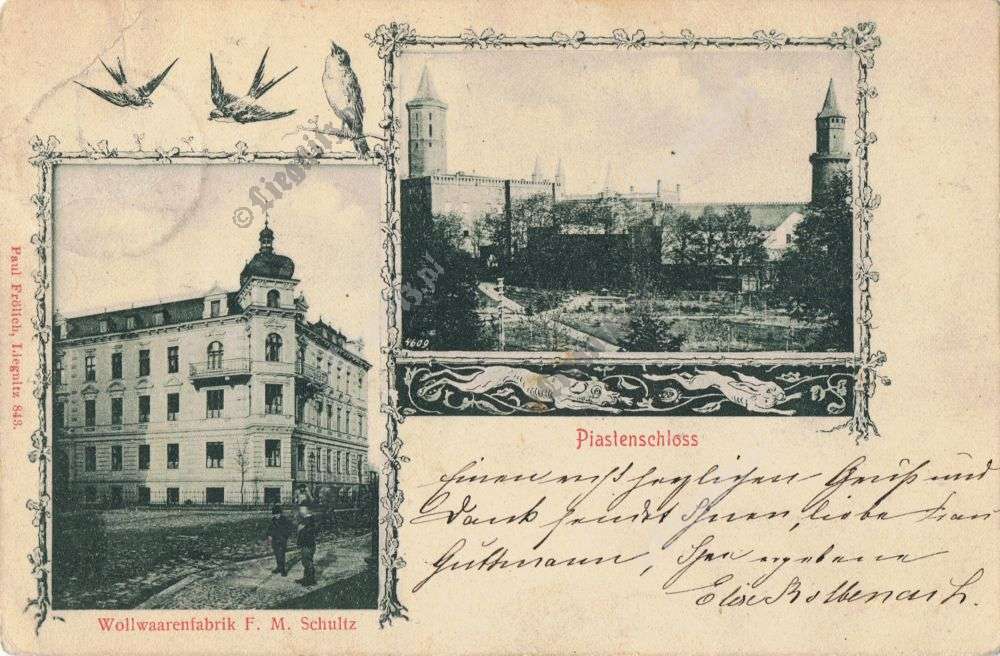 4609
Piastenschloss
Wollwaarenfabrik F. M. Schultz
Paul Frölich, Liegnitz 848.
Einen recht herzlichen Gruß und
Dank sendet Ihnen, liebe Frau
Guttmann, Ihre ergebene
Elise